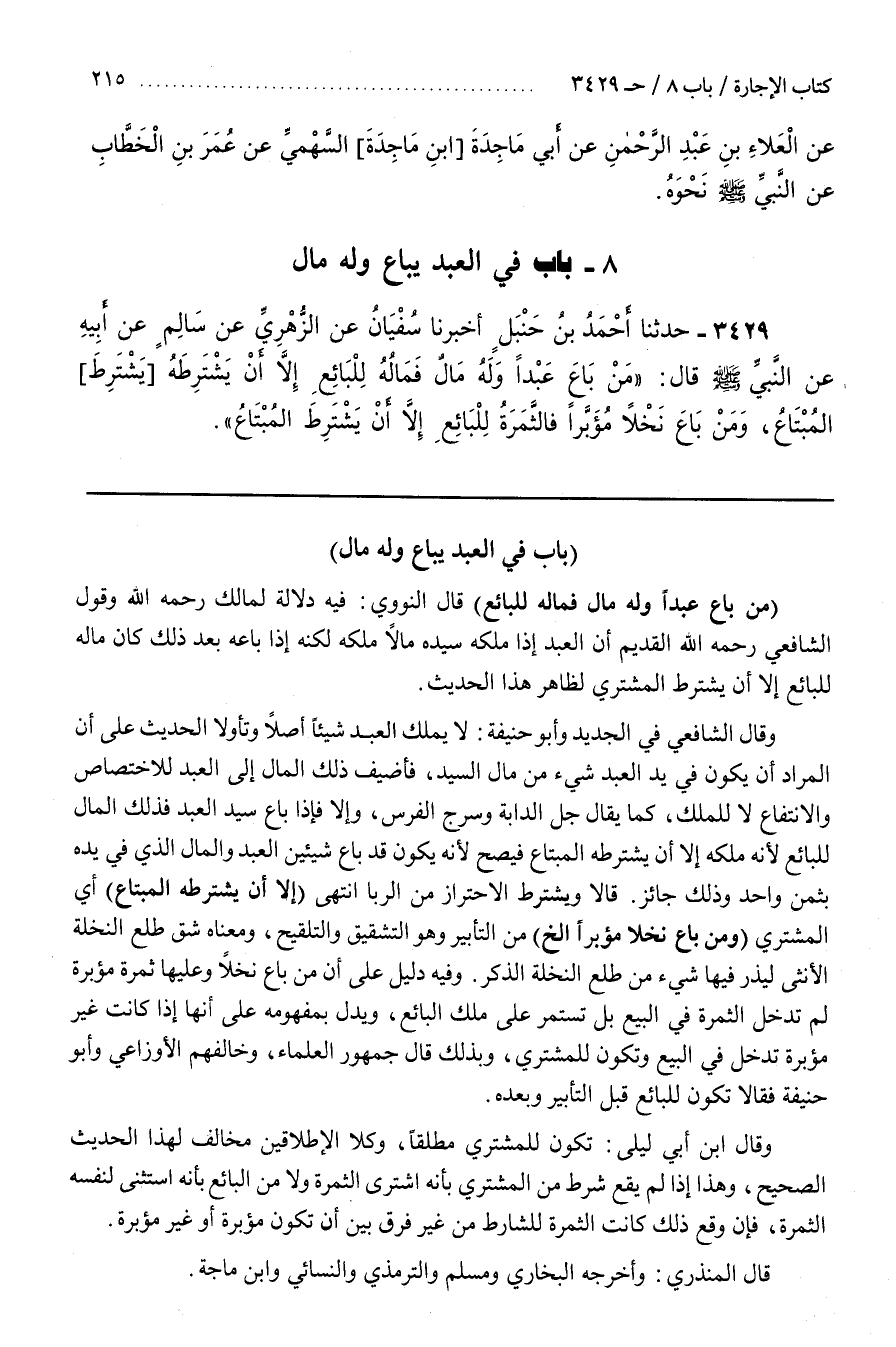 كتاب الإجارة / باب ٨ / حـ ٣٤٢٩ ............................................... ٢١٥
عن الْعَلاءِ بنِ عَبْدِ الرَّحْمٰنِ عن أَبي مَاجِدَةَ [ابنِ مَاجِدَةَ] السَّهْمِيِّ عن عُمَرَ بنِ الْخَطَّابِ
عن النَّبيِّ ﷺ نَحْوَهُ.
٨ ـ باب في العبد يباع وله مال
٣٤٢٩ ـ حدثنا أَحْمَدُ بنُ حَنْبَلٍ أخبرنا سُفْيَانُ عن الزُّهْرِيِّ عن سَالِمٍ عن أَبِيهِ
عن النَّبيِّ ﷺ قال: «مَنْ بَاعَ عَبْداً وَلَهُ مَالٌ فَمَالُهُ لِلْبَائِعِ إِلَّا أَنْ يَشْتَرِطَهُ [يَشْتَرِطَ]
المُبْتَاعُ، وَمَنْ بَاعَ نَخْلًا مُؤَبَّراً فالثَّمَرَةُ لِلْبَائِعِ إِلَّا أَنْ يَشْتَرِطَ المُبْتَاعُ».
(باب في العبد يباع وله مال)
(من باع عبداً وله مال فماله للبائع) قال النووي: فيه دلالة لمالك رحمه الله وقول
الشافعي رحمه الله القديم أن العبد إذا ملكه سيده مالاً ملكه لكنه إذا باعه بعد ذلك كان ماله
للبائع إلا أن يشترط المشتري لظاهر هذا الحديث.
وقال الشافعي في الجديد وأبو حنيفة: لا يملك العبد شيئاً أصلًا وتأولا الحديث على أن
المراد أن يكون في يد العبد شيء من مال السيد، فأضيف ذلك المال إلى العبد للاختصاص
والانتفاع لا للملك، كما يقال جل الدابة وسرج الفرس، وإلا فإذا باع سيد العبد فذلك المال
للبائع لأنه ملكه إلا أن يشترطه المبتاع فيصح لأنه يكون قد باع شيئين العبد والمال الذي في يده
بثمن واحد وذلك جائز. قالا ويشترط الاحتراز من الربا انتهى (إلا أن يشترطه المبتاع) أي
المشتري (ومن باع نخلا مؤبراً الخ) من التأبير وهو التشقيق والتلقيح، ومعناه شق طلع النخلة
الأنثى ليذر فيها شيء من طلع النخلة الذكر. وفيه دليل على أن من باع نخلًا وعليها ثمرة مؤبرة
لم تدخل الثمرة في البيع بل تستمر على ملك البائع، ويدل بمفهومه على أنها إذا كانت غير
مؤبرة تدخل في البيع وتكون للمشتري، وبذلك قال جمهور العلماء، وخالفهم الأوزاعي وأبو
حنيفة فقالا تكون للبائع قبل التأبير وبعده.
وقال ابن أبي ليلى: تكون للمشتري مطلقاً، وكلا الإطلاقين مخالف لهذا الحديث
الصحيح، وهذا إذا لم يقع شرط من المشتري بأنه اشترى الثمرة ولا من البائع بأنه استثنى لنفسه
الثمرة، فإن وقع ذلك كانت الثمرة للشارط من غير فرق بين أن تكون مؤبرة أو غير مؤبرة.
قال المنذري: وأخرجه البخاري ومسلم والترمذي والنسائي وابن ماجة.